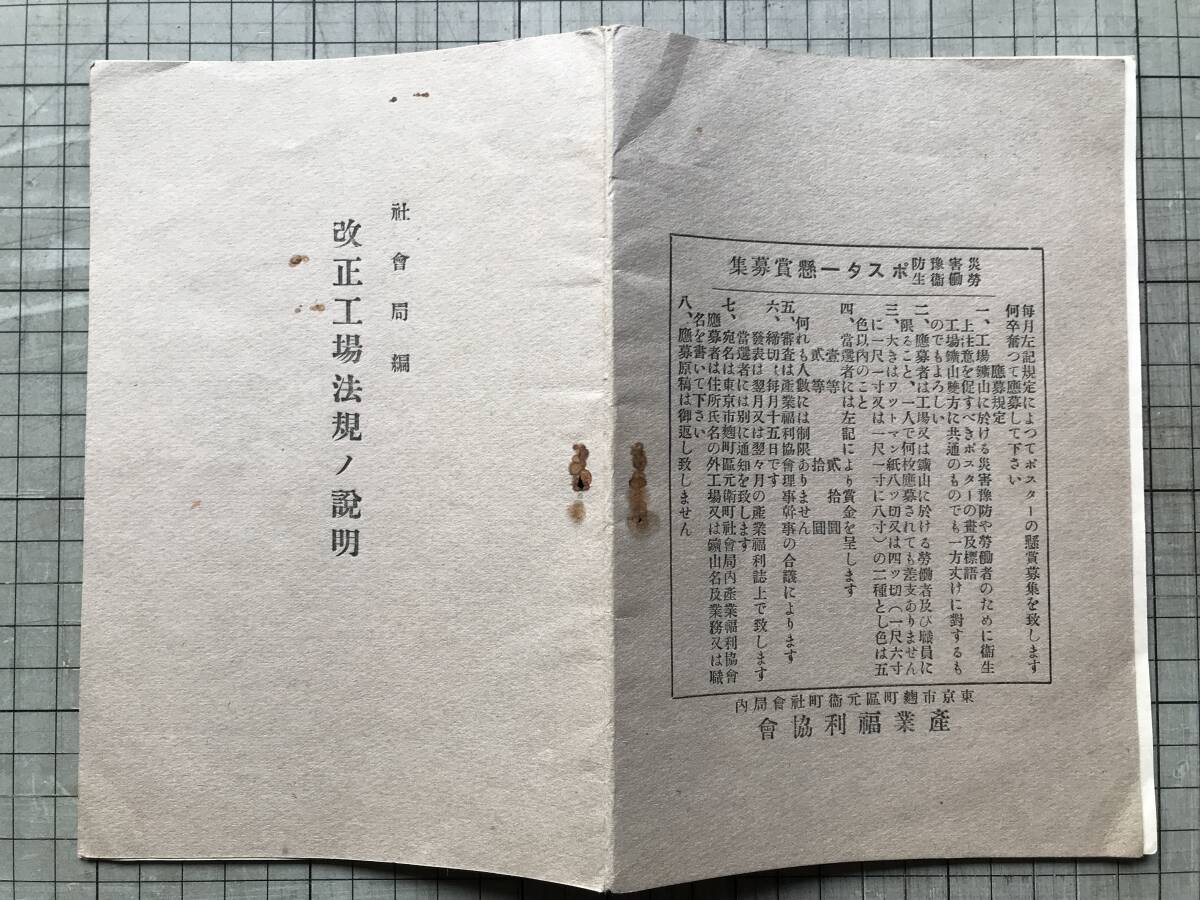 社會局編
改正工場法規ノ說明
災害豫防
勞働衞生
ポスター懸賞募集
毎月左記規定によつてポスターの懸賞募集を致します
何卒奮つて應募して下さい
應募規定
一、工場鑛山に於ける災害豫防や勞働者のために衞生
上注意を促すべきポスターの畫及標語
工場鑛山雙方に共通のものでも一方丈けに對するも
のでもよろしい
二、應募者は工場又は鑛山に於ける勞働者及び職員に
限ること、一人で何枚應募されても差支ありません
三、大きはワットマン紙八ッ切又は四ッ切(一尺六寸
に一尺一寸又は一尺一寸に八寸)の二種とし色は五
色以內のこと
四、當選者には左記により賞金を呈します
壹等 貳拾圓
貳等 拾圓
何れも人數には制限ありません
五、審査は產業福利協會理事幹事の合議によります
六、締切は每月十五日です
發表は翌月又は翌々月の產業福利誌上で致します
當選者には別に通知を致します
七、宛名は東京市麴町區元衞町社會局內產業福利協會
應募者は住所氏名の外工場又は鑛山名及業務又は職
名を書いて下さい
八、應募原稿は御返し致しません
東京市麴町區元衞町社會局內
產業福利協會